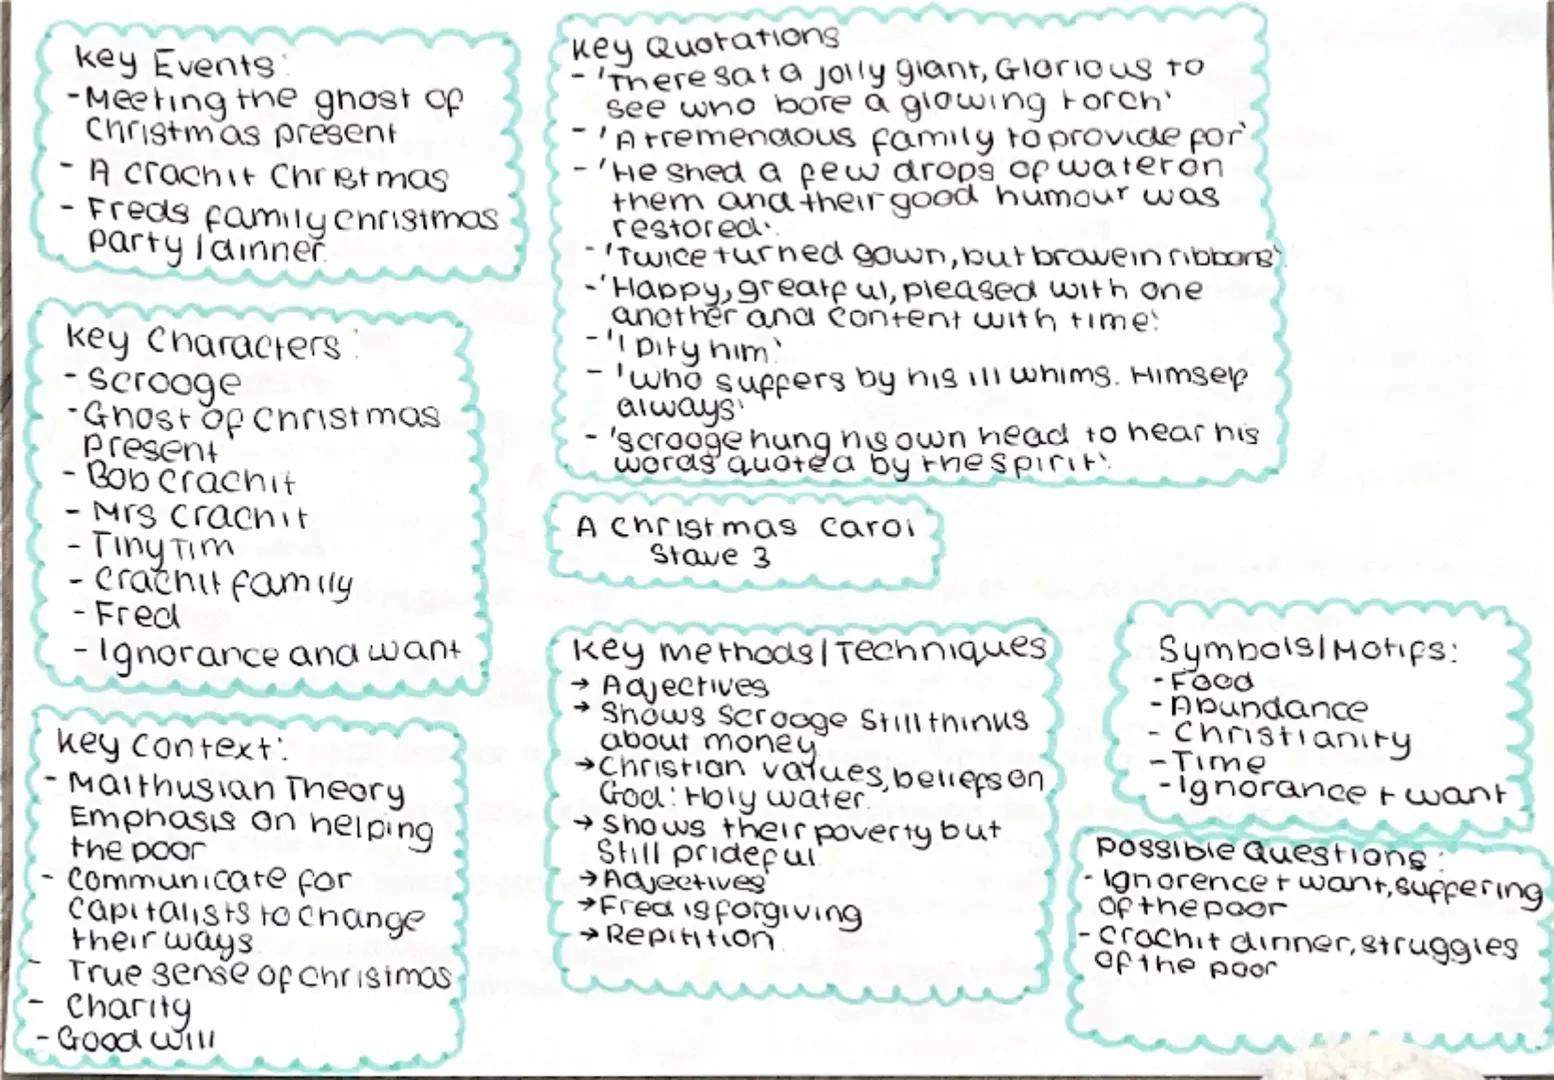 Key Events:
- Meeting the ghost of
Christmas present
- A crachit Christmas
- Freds family christmas
party/dinner.
Key Characters:
- Scrooge
- Ghost of Christmas
present
- Bob crachit
- Mrs crachit
- Tiny Tim
- crachit family
- Fred
- Ignorance and want
Key context:
- Malthusian Theory
Emphasis on helping
the poor
- Communicate for
capitalists to change
their ways
- True sense of christmas
- Charity
- Good will
Key Quotations
- 'There sat a jolly giant, Glorious to
see who bore a glowing torch'
- 'A tremendous family to provide for'
- 'He shed a few drops of water on
them and their good humour was
restored'.
- 'Twice turned gown, but browe in ribbons'.
- 'Happy, greatful, pleased with one
another and content with time'.
- 'I pity him'
- 'who suffers by his ill whims. Himself
always'
- 'scrooge hung his own head to hear his
words quoted by the spirit'.
A Christmas Carol
Stave 3
Key methods/Techniques
→ Adjectives
→ Shows Scrooge Still thinks
about money
→ Christian values, beliefs on
God: Holy water.
→ Shows their poverty but
Still prideful.
→ Adjectives
→ Fred is forgiving
→ Repitition
Symbols/Motifs:
- Food
- Abundance
- Christianity
- Time
- Ignorance + want
Possible Questions:
- Ignorence + want, suffering
of the poor
- crachit dinner, struggles
of the poor